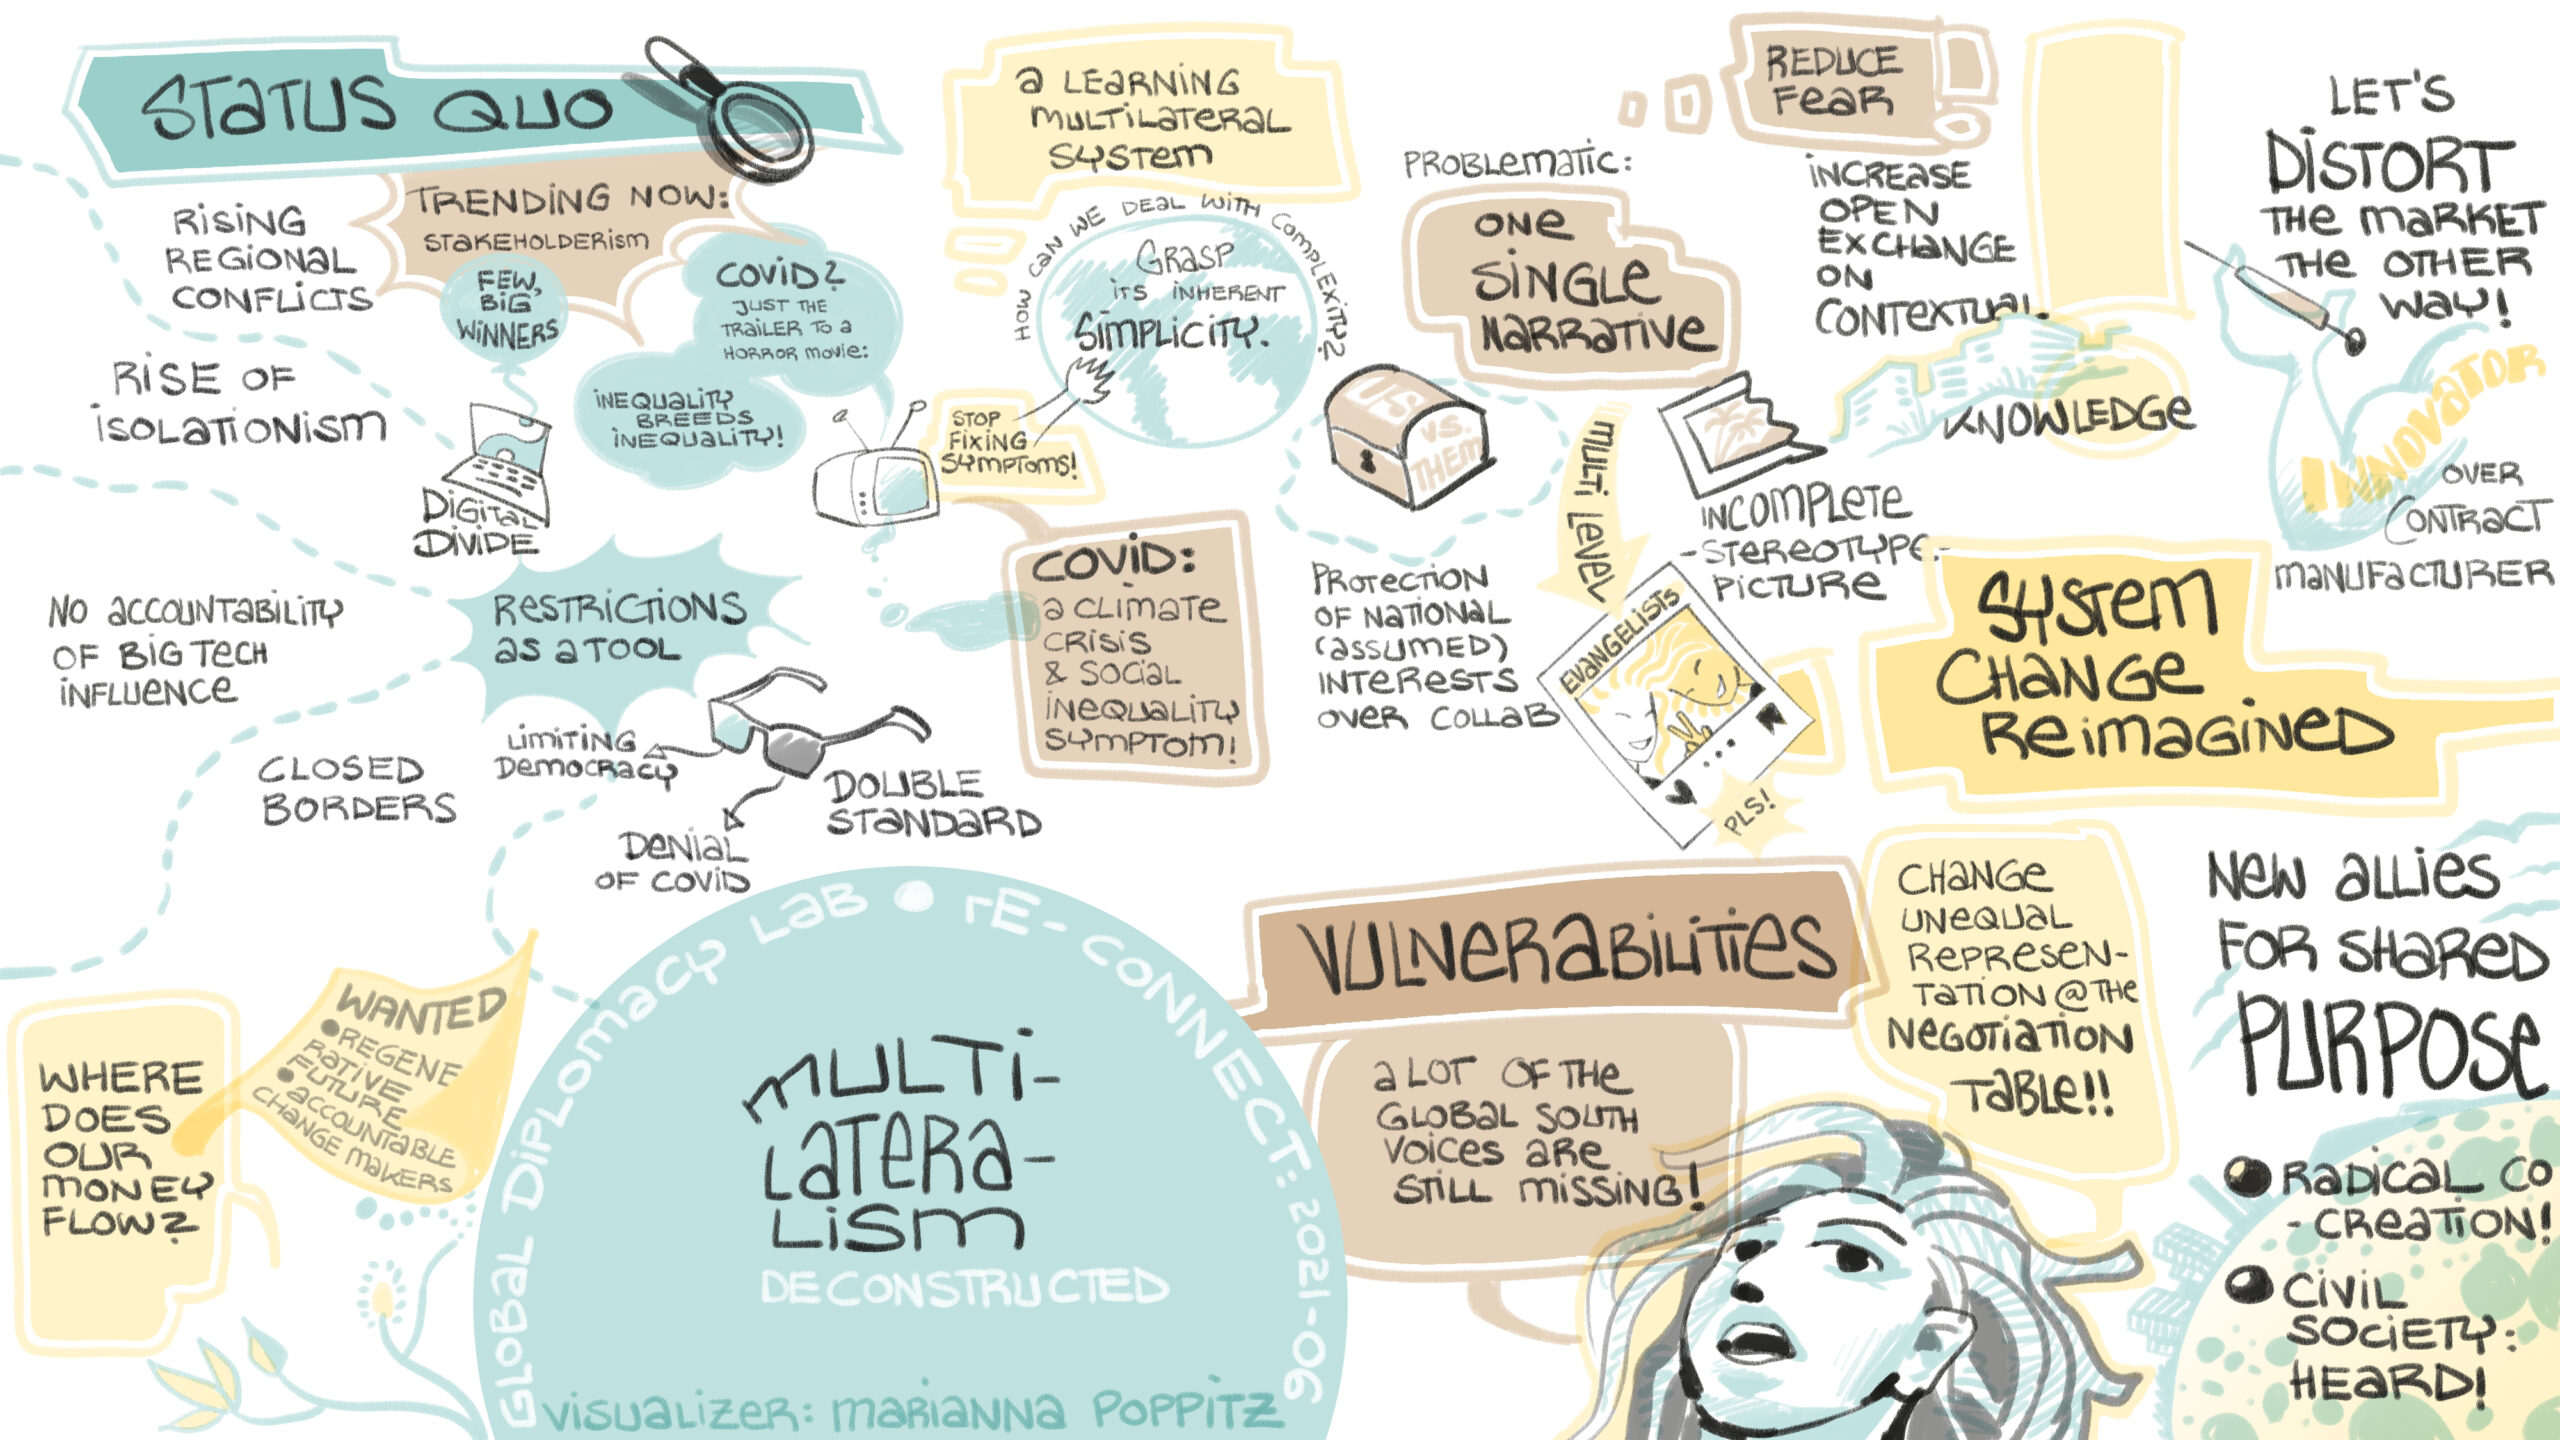 STATUS QUO
TRENDING NOW:
STAKEHOLDERISM
RISING
REGIONAL
CONFLICTS
FEW,
BIG
WINNERS
COVID?
JUST THE
TRAILER TO A
HORROR MOVIE:
INEQUALITY
BREEDS
INEQUALITY!
RISE OF
ISOLATIONISM
DIGITAL
DIVIDE
NO ACCOUNTABILITY
OF BIG TECH
INFLUENCE
RESTRICTIONS
AS A TOOL
CLOSED
BORDERS
LIMITING
DEMOCRACY
DENIAL
OF COVID
DOUBLE
STANDARD
A LEARNING
MULTILATERAL
SYSTEM
HOW CAN WE DEAL WITH COMPLEXITY?
GRASP
ITS INHERENT
SIMPLICITY.
STOP
FIXING
SYMPTOMS!
COVID:
A CLIMATE
CRISIS
& SOCIAL
INEQUALITY
SYMPTOM!
PROBLEMATIC:
ONE
SINGLE
NARRATIVE
US
VS.
THEM
PROTECTION
OF NATIONAL
(ASSUMED)
INTERESTS
OVER COLLAB
MULTI LEVEL
EVANGELISTS
PLS!
INCOMPLETE
-STEREOTYPE-
PICTURE
REDUCE
FEAR
INCREASE
OPEN
EXCHANGE
ON
CONTEXTUAL
KNOWLEDGE
LET'S
DISTORT
THE MARKET
THE OTHER
WAY!
INNOVATOR
OVER
CONTRACT
MANUFACTURER
SYSTEM
CHANGE
REIMAGINED
WHERE
DOES
OUR
MONEY
FLOW?
WANTED
• REGENE
RATIVE
FUTURE
• ACCOUNTABLE
CHANGE MAKERS
GLOBAL DIPLOMACY LAB • rE-CONNECT: 2021-06
MULTI-
LATERA-
LISM
DECONSTRUCTED
VISUALIZER: MARIANNA POPPITZ
VULNERABILITIES
A LOT OF THE
GLOBAL SOUTH
VOICES ARE
STILL MISSING!
CHANGE
UNEQUAL
REPRESEN-
TATION @ THE
NEGOTIATION
TABLE!!
NEW ALLIES
FOR SHARED
PURPOSE
• RADICAL CO
- CREATION!
• CIVIL
SOCIETY:
HEARD!